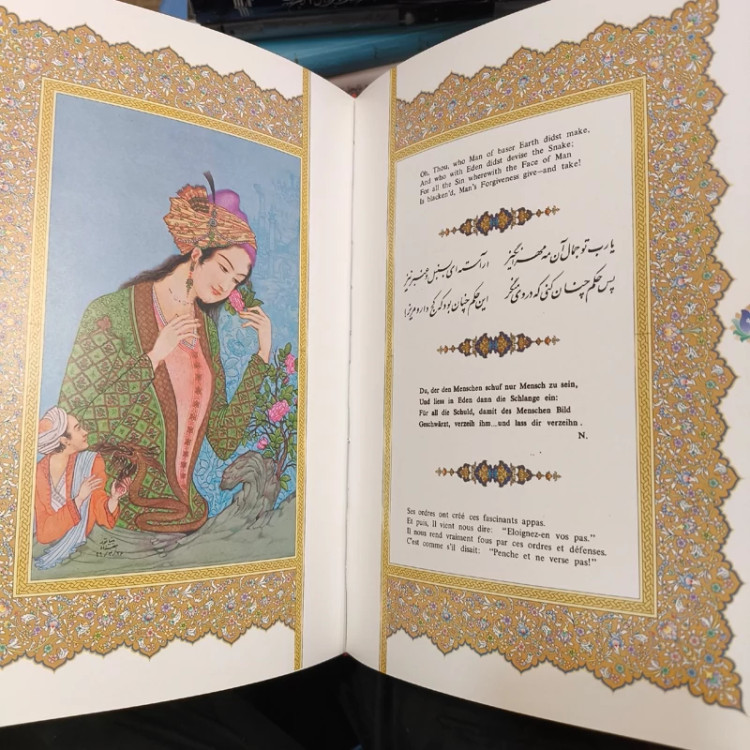 Oh, Thou, who Man of baser Earth didst make,
And who with Eden didst devise the Snake;
For all the Sin wherewith the Face of Man
Is blacken'd, Man's Forgiveness give—and take!
یارب تو جمال آن مه مهر انگیز آراسته ای بسنبل عنبر بیز
پس حکم چنان کنی که در وی منگر این حکم چنان بود که کج دار و مریز
Du, der den Menschen schuf nur Mensch zu sein,
Und liess in Eden dann die Schlange ein:
Für all die Schuld, damit des Menschen Bild
Geschwärzt, verzeih ihm...und lass dir verzeihn.
N.
Ses ordres ont créé ces fascinants appas.
Et puis, Il vient nous dire: "Eloignez-en vos pas."
Il nous rend vraiment fous par ces ordres et défenses.
C'est comme s'il disait: "Penche et ne verse pas!"